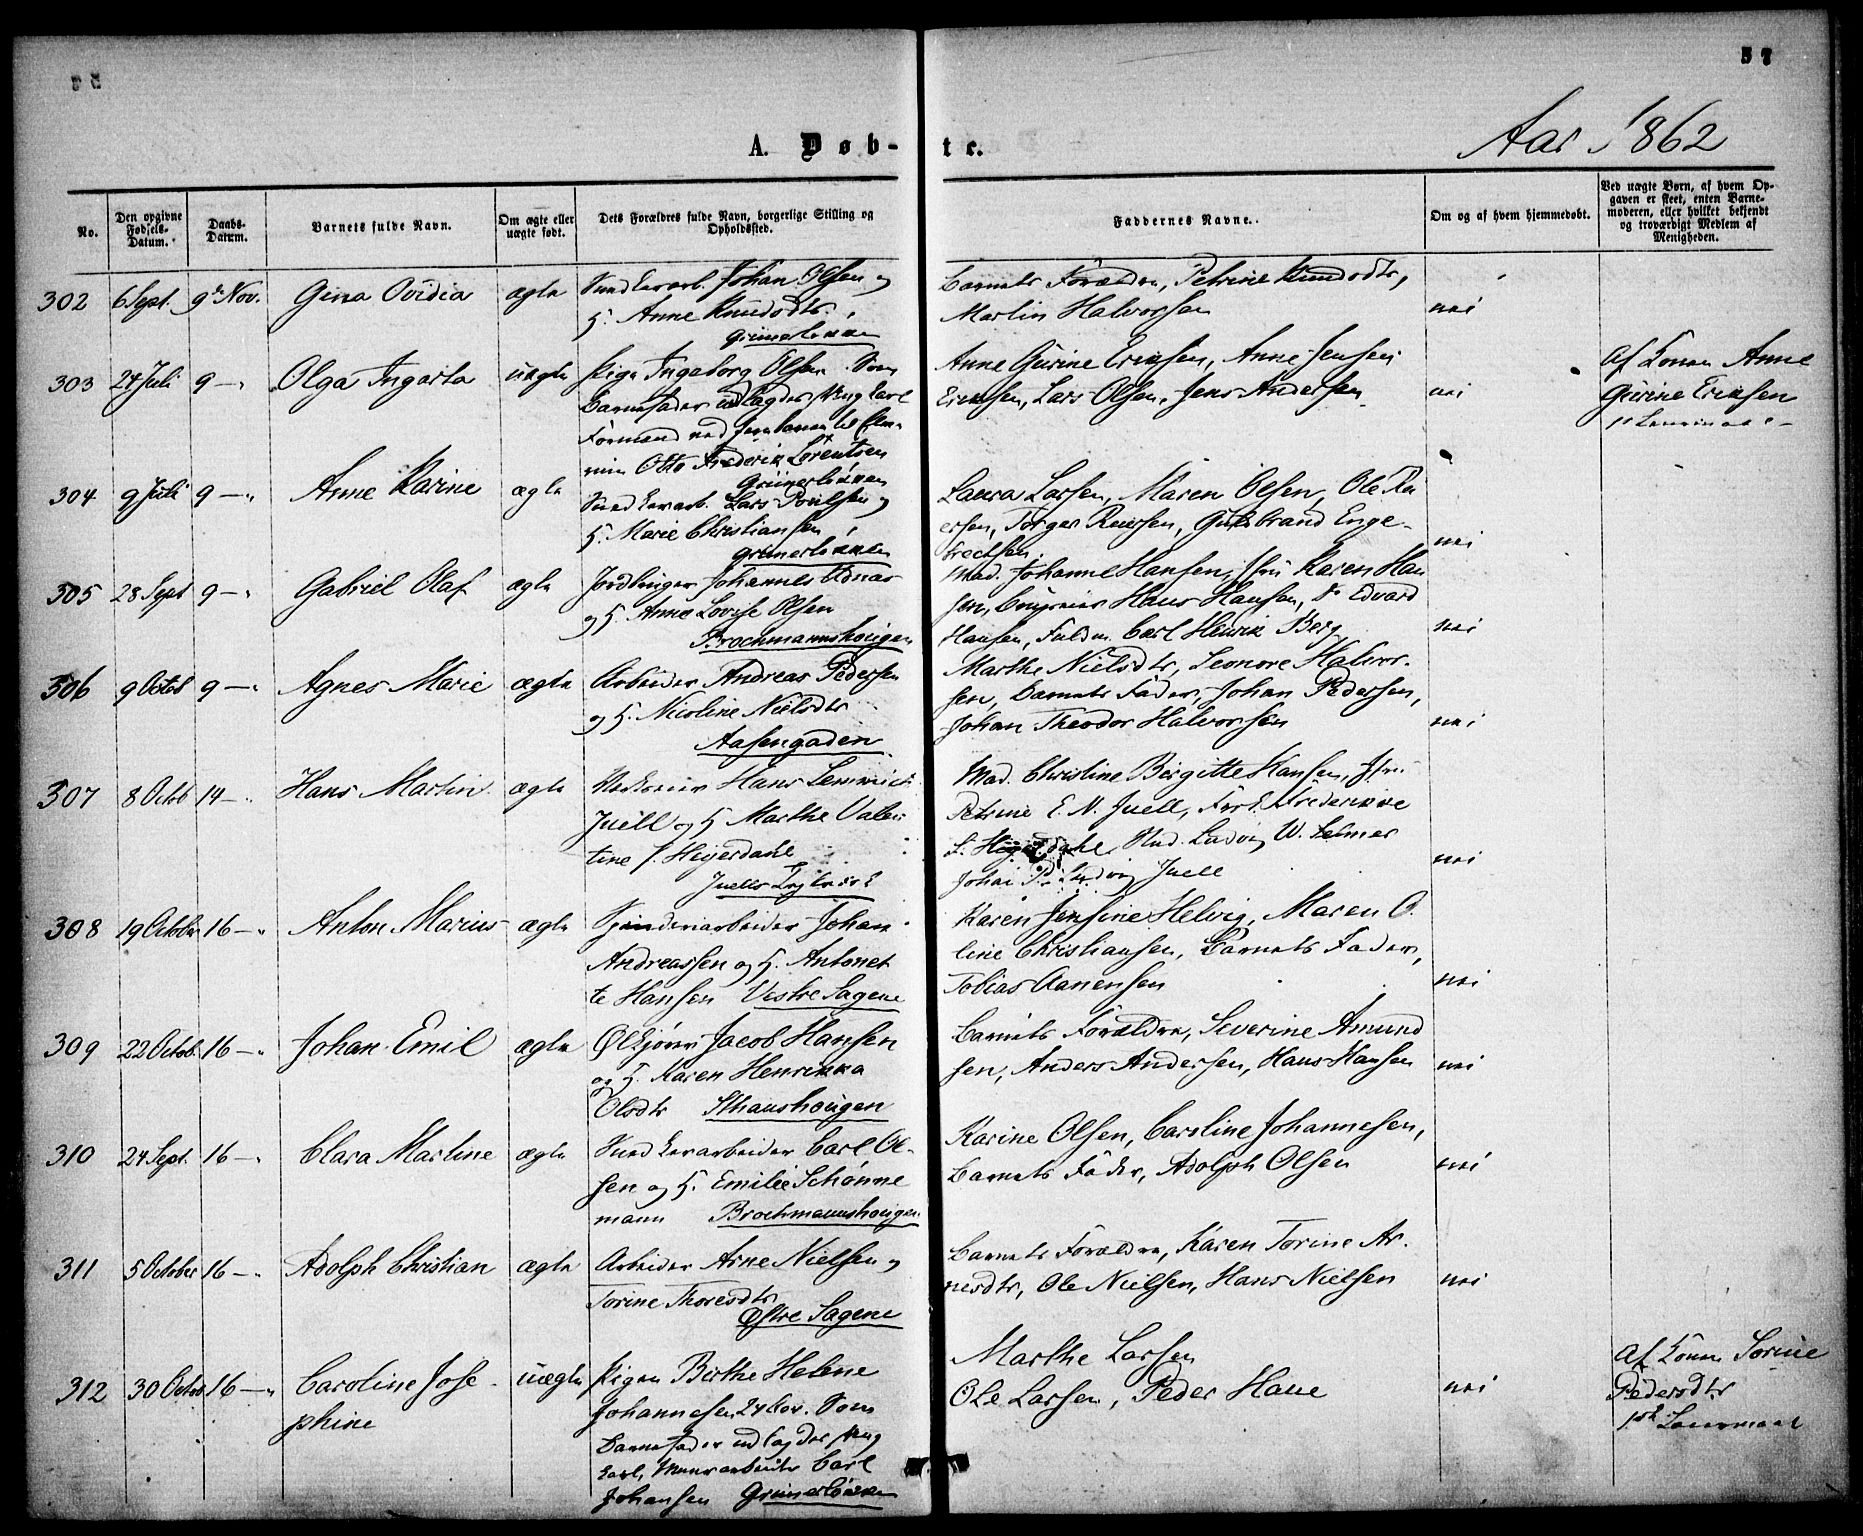 57
A. Døb-te.
Aar 1862
No.
Den opgivne Fødsels-Datum.
Daabs-Datum.
Barnets fulde Navn.
Om ægte eller uægte født.
Dets Forældres fulde Navn, borgerlige Stilling og Opholdssted.
Faddernes Navne.
Om og af hvem hjemmedøbt.
Ved uægte Børn, af hvem Opgaven er skeet, enten Barnemoderen, eller hvilket bekjendt og troværdigt Medlem af Menigheden.
302 6 Sept. 9 Nov. Gina Ovidia ægte Snedkerarb. Johan Olsen og
H. Anne Knudsdtr.
Grünerløkken
Barnets Forældre, Petrine Knudsdtr,
Martin Halvorsen nei
303 24 Juli 9 — Olga Ingarta uægte Pige Ingeborg Olsen. Som
Barnefader udlagdes Ungkarl
Formand ved Jernbanen til
Otto Frederik Lorentsen
Grünerløkken
Anne Gurine Eriksen, Anne Jensen
Eriksen, Lars Olsen, Jens Andersen nei
Af Konen Anne
Gurine Eriksen
304 9 Juli 9 — Anne Karine ægte Snedkerarb. Lars Poulsen og
H. Marie Christiansen
Grünerløkken
Laura Larsen, Maren Olsen, Ole
Torger Gulbrand Enge-
bretsen. nei
305 28 Sept 9 — Gabriel Olaf ægte Jordbruger Johannes
og H. Anne Lovise Olsen
Brochmannshougen
Mad. Johanne Hansen, Jfru Karen Han
sen, Hans Hansen, Do Edvard
Hansen, Fuldm. Carl Henrik Berg nei
306 9 Octob 9 — Agnes Marie ægte Arbeider Andreas Pedersen
og H. Nicoline Nielsdtr
Aasengaden
Marthe Nielsdtr, Leonore Halvor-
sen, Barnets Fader, Johan Pedersen,
Johan Theodor Halvorsen nei
307 8 Octob 14 — Hans Martin ægte Hans Lemmich
Juell og H. Marthe Valen
tine f. Heyerdahl
Juells
Mad. Christine Birgitte Hansen, Jfru
Petrine E. N. Juell, Frk. Frederikke
Stud. Ludvig W. Selmer
Ludvig Juell nei
308 19 Octob 16 — Anton Marius ægte Spinderiarbeider Johan
Andreassen og H. Antonet
te Hansen Vestre Sagene
Karen Jensine Helvig, Maren O
line Christiansen, Barnets Fader,
Tobias Aanensen nei
309 22 Octob. 16 — Johan Emil ægte Ølkjører Jacob Hansen
og H. Karen Henrikka
Olsdtr Sthanshougen
Barnets Forældre, Severine Amund
sen, Anders Andersen, Hans Hansen nei
310 24 Sept. 16 — Clara Martine ægte Snedkerarbeider Carl Ol-
sen og H. Emilie Schønne
mann Brochmannshougen
Karine Olsen, Caroline Johannesen,
Barnets Fader, Adolph Olsen nei
311 5 October 16 — Adolph Christian ægte Arbeider Arne Nielsen og
Torine Thoresdtr
Østre Sagene
Barnets Forældre, Karen Torine Ar-
nesdtr, Ole Nielsen, Hans Nielsen nei
312 30 Octob 16 — Caroline Jose-
phine uægte Pigen Birthe Helene
Johannesen, 24 Som
Barnefader udlagdes Ung
karl, Murarbeider Carl
Johansen Grünerløkken
Marthe Larsen
Ole Larsen, Peder Hane nei
Af Konen Torine
Pedersdtr